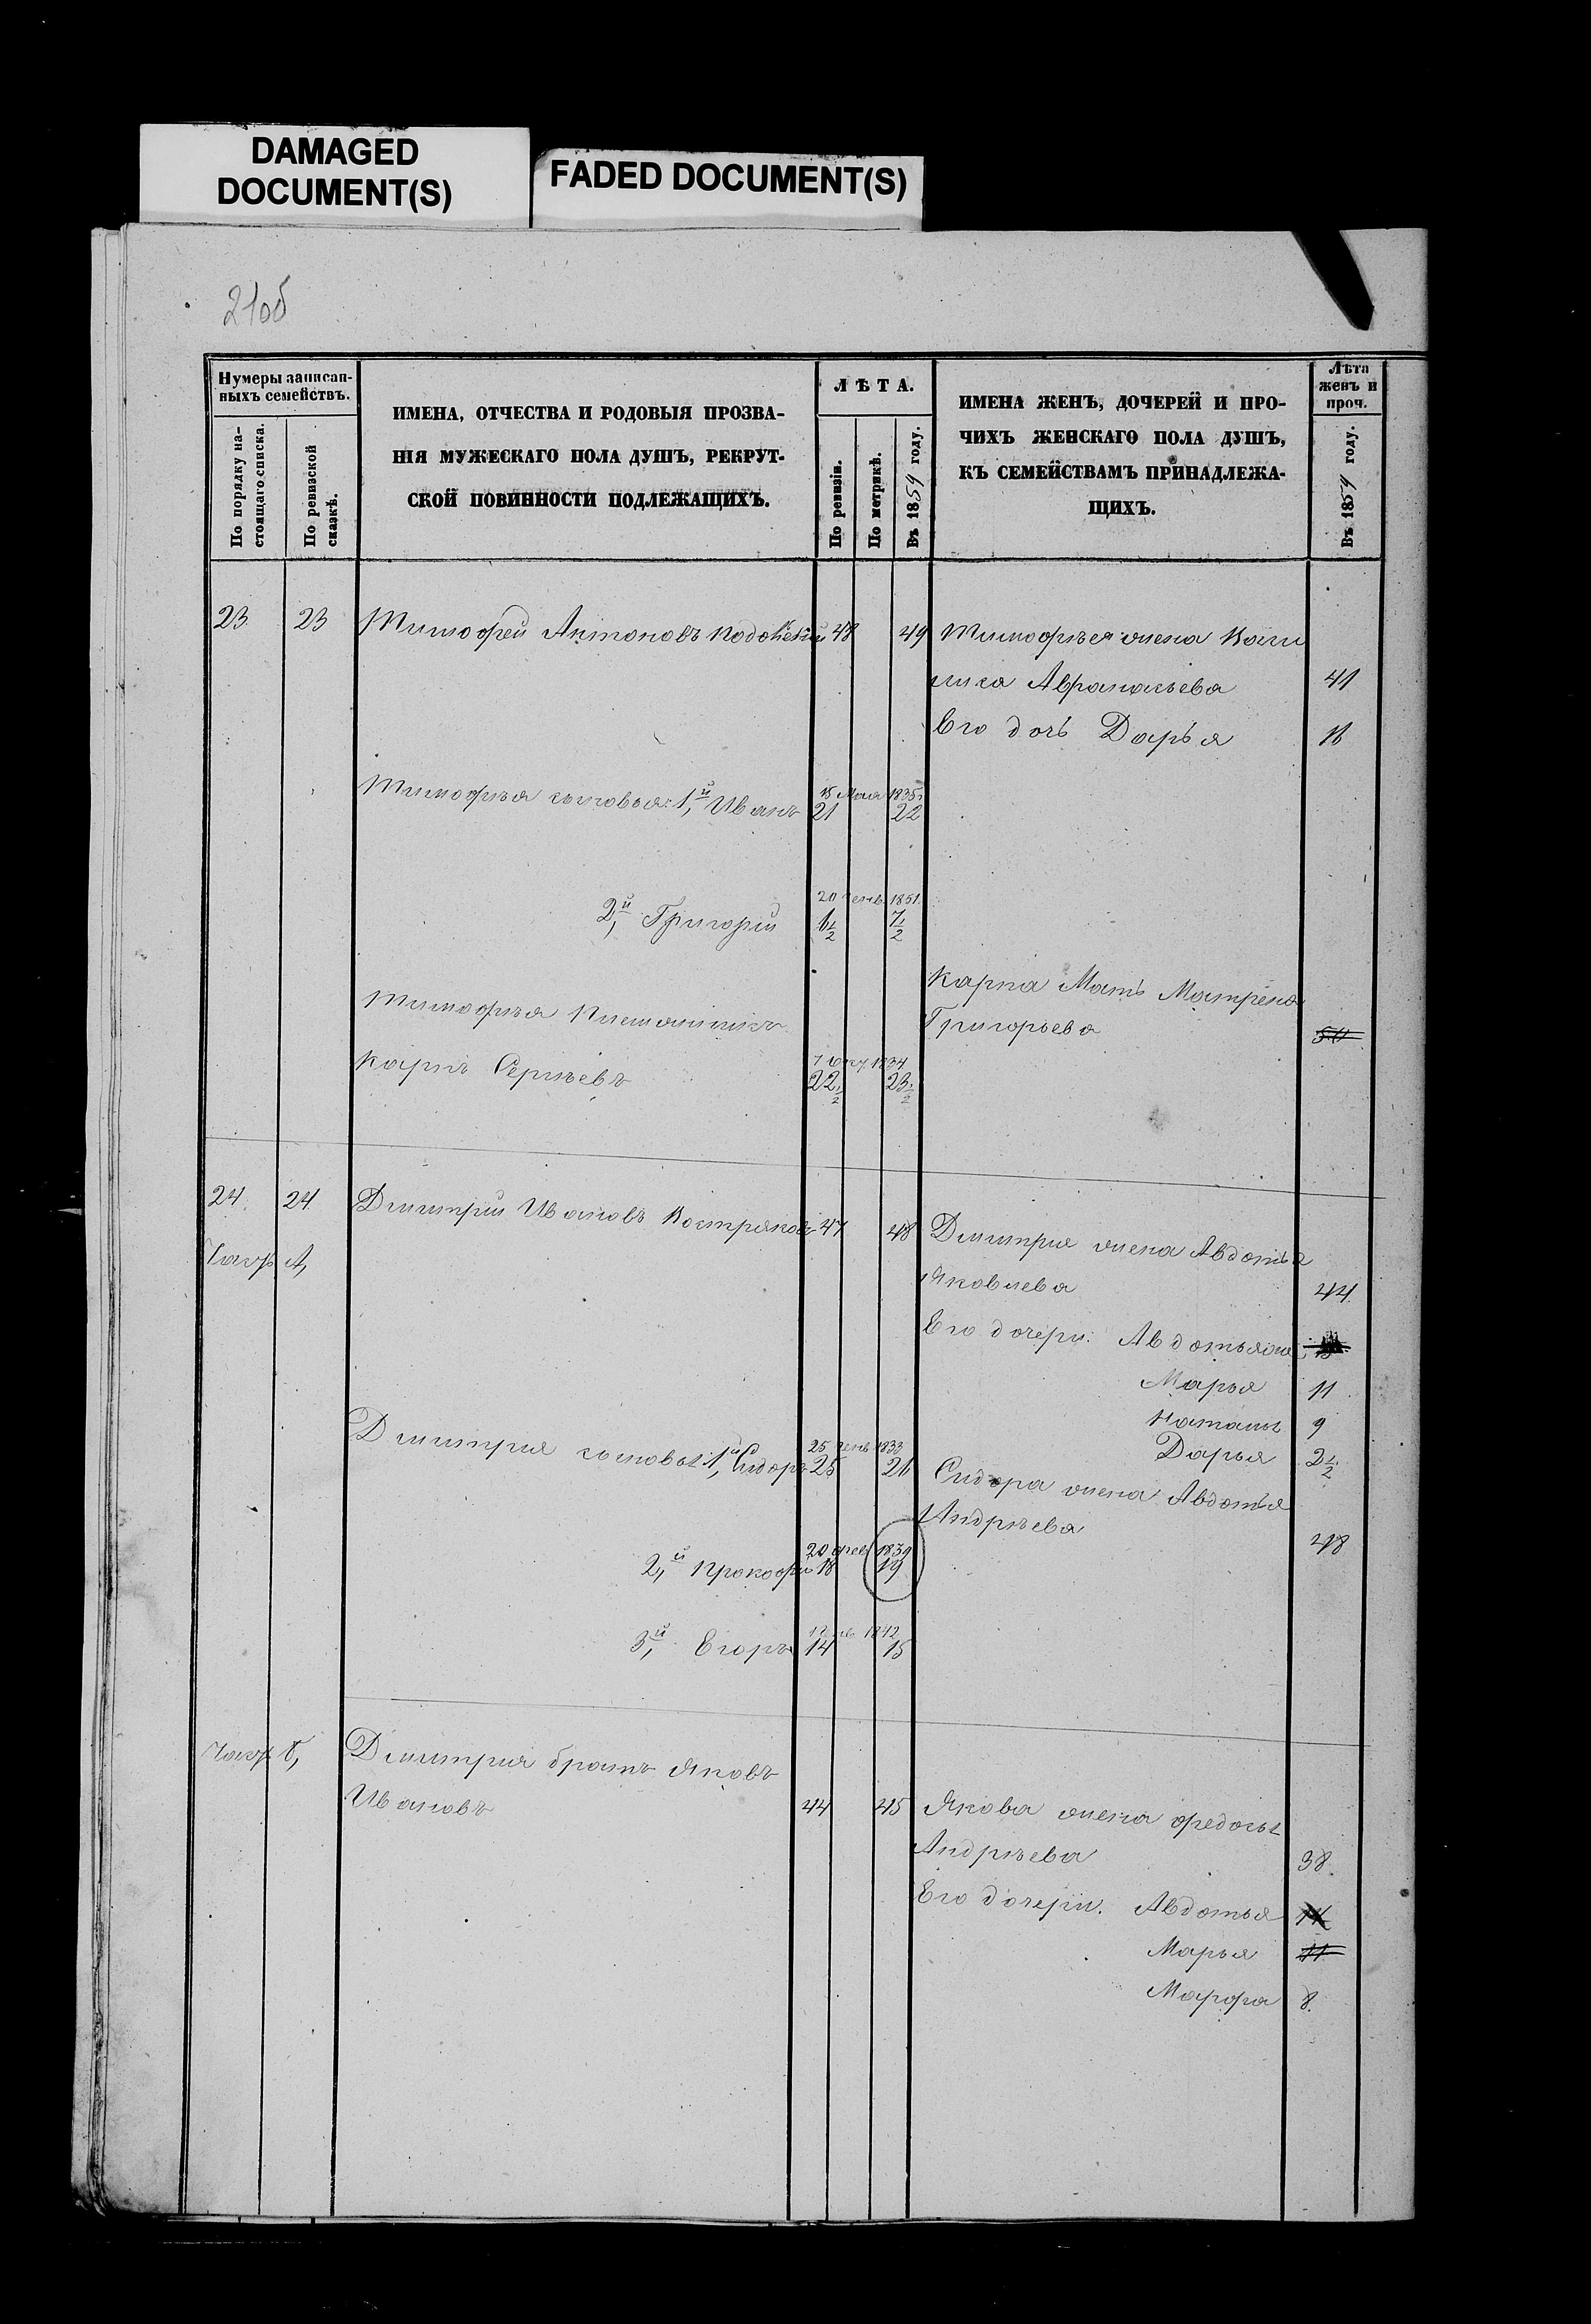 DAMAGED
DOCUMENT(S)
FADED DOCUMENT(S)
21об
Нумеры записан-
ныхъ семействъ.
По порядку на-
стоящаго списка.
По ревизской
сказкѣ.
ИМЕНА, ОТЧЕСТВА И РОДОВЫЯ ПРОЗВА-
НІЯ МУЖЕСКАГО ПОЛА ДУШЪ, РЕКРУТ-
СКОЙ ПОВИННОСТИ ПОДЛЕЖАЩИХЪ.
ЛѢТА.
По ревизіи.
По метрикѣ.
Въ 1859 году.
ИМЕНА ЖЕНЪ, ДОЧЕРЕЙ И ПРО-
ЧИХЪ ЖЕНСКАГО ПОЛА ДУШЪ,
КЪ СЕМЕЙСТВАМЪ ПРИНАДЛЕЖА-
ЩИХЪ.
Лѣта
женъ и
проч.
Въ 1859 году.
23 23 Тимофей Антоновъ 48 49 Тимофѣя жена Васи
лиса Афанасьева 41
Его дочь Дарья
Тимофѣя сыновья: 1й, Иванъ
15 Мая 1835
21 22
2й, Григорій
20 генв. 1851
7½
Тимофѣя Племянникъ
Карпъ Сергѣевъ
1834
22½ 23½
Карпа Мать Матрена
Григорьева
24 24 Дмитрій Ивановъ Востряковъ 47 48 Дмитрія жена Авдотья
А,
Яковлева 44
Его дочери: Авдотья
Марья 11
Наталья 9
Дарья 2½
Дмитрія сыновья 1й, Сидоръ
25 генв 1833
25 26
Сидора жена Авдотья
Андрѣева 28
2й, Прокофій
20 фев 1839
18 19
3й, Егоръ
1842
14 15
б, Дмитрія братъ Яковъ
Ивановъ 44 45 Якова жена Федосья
Андрѣева 38
Его дочери. Авдотья
Марья 11
Марфа 8